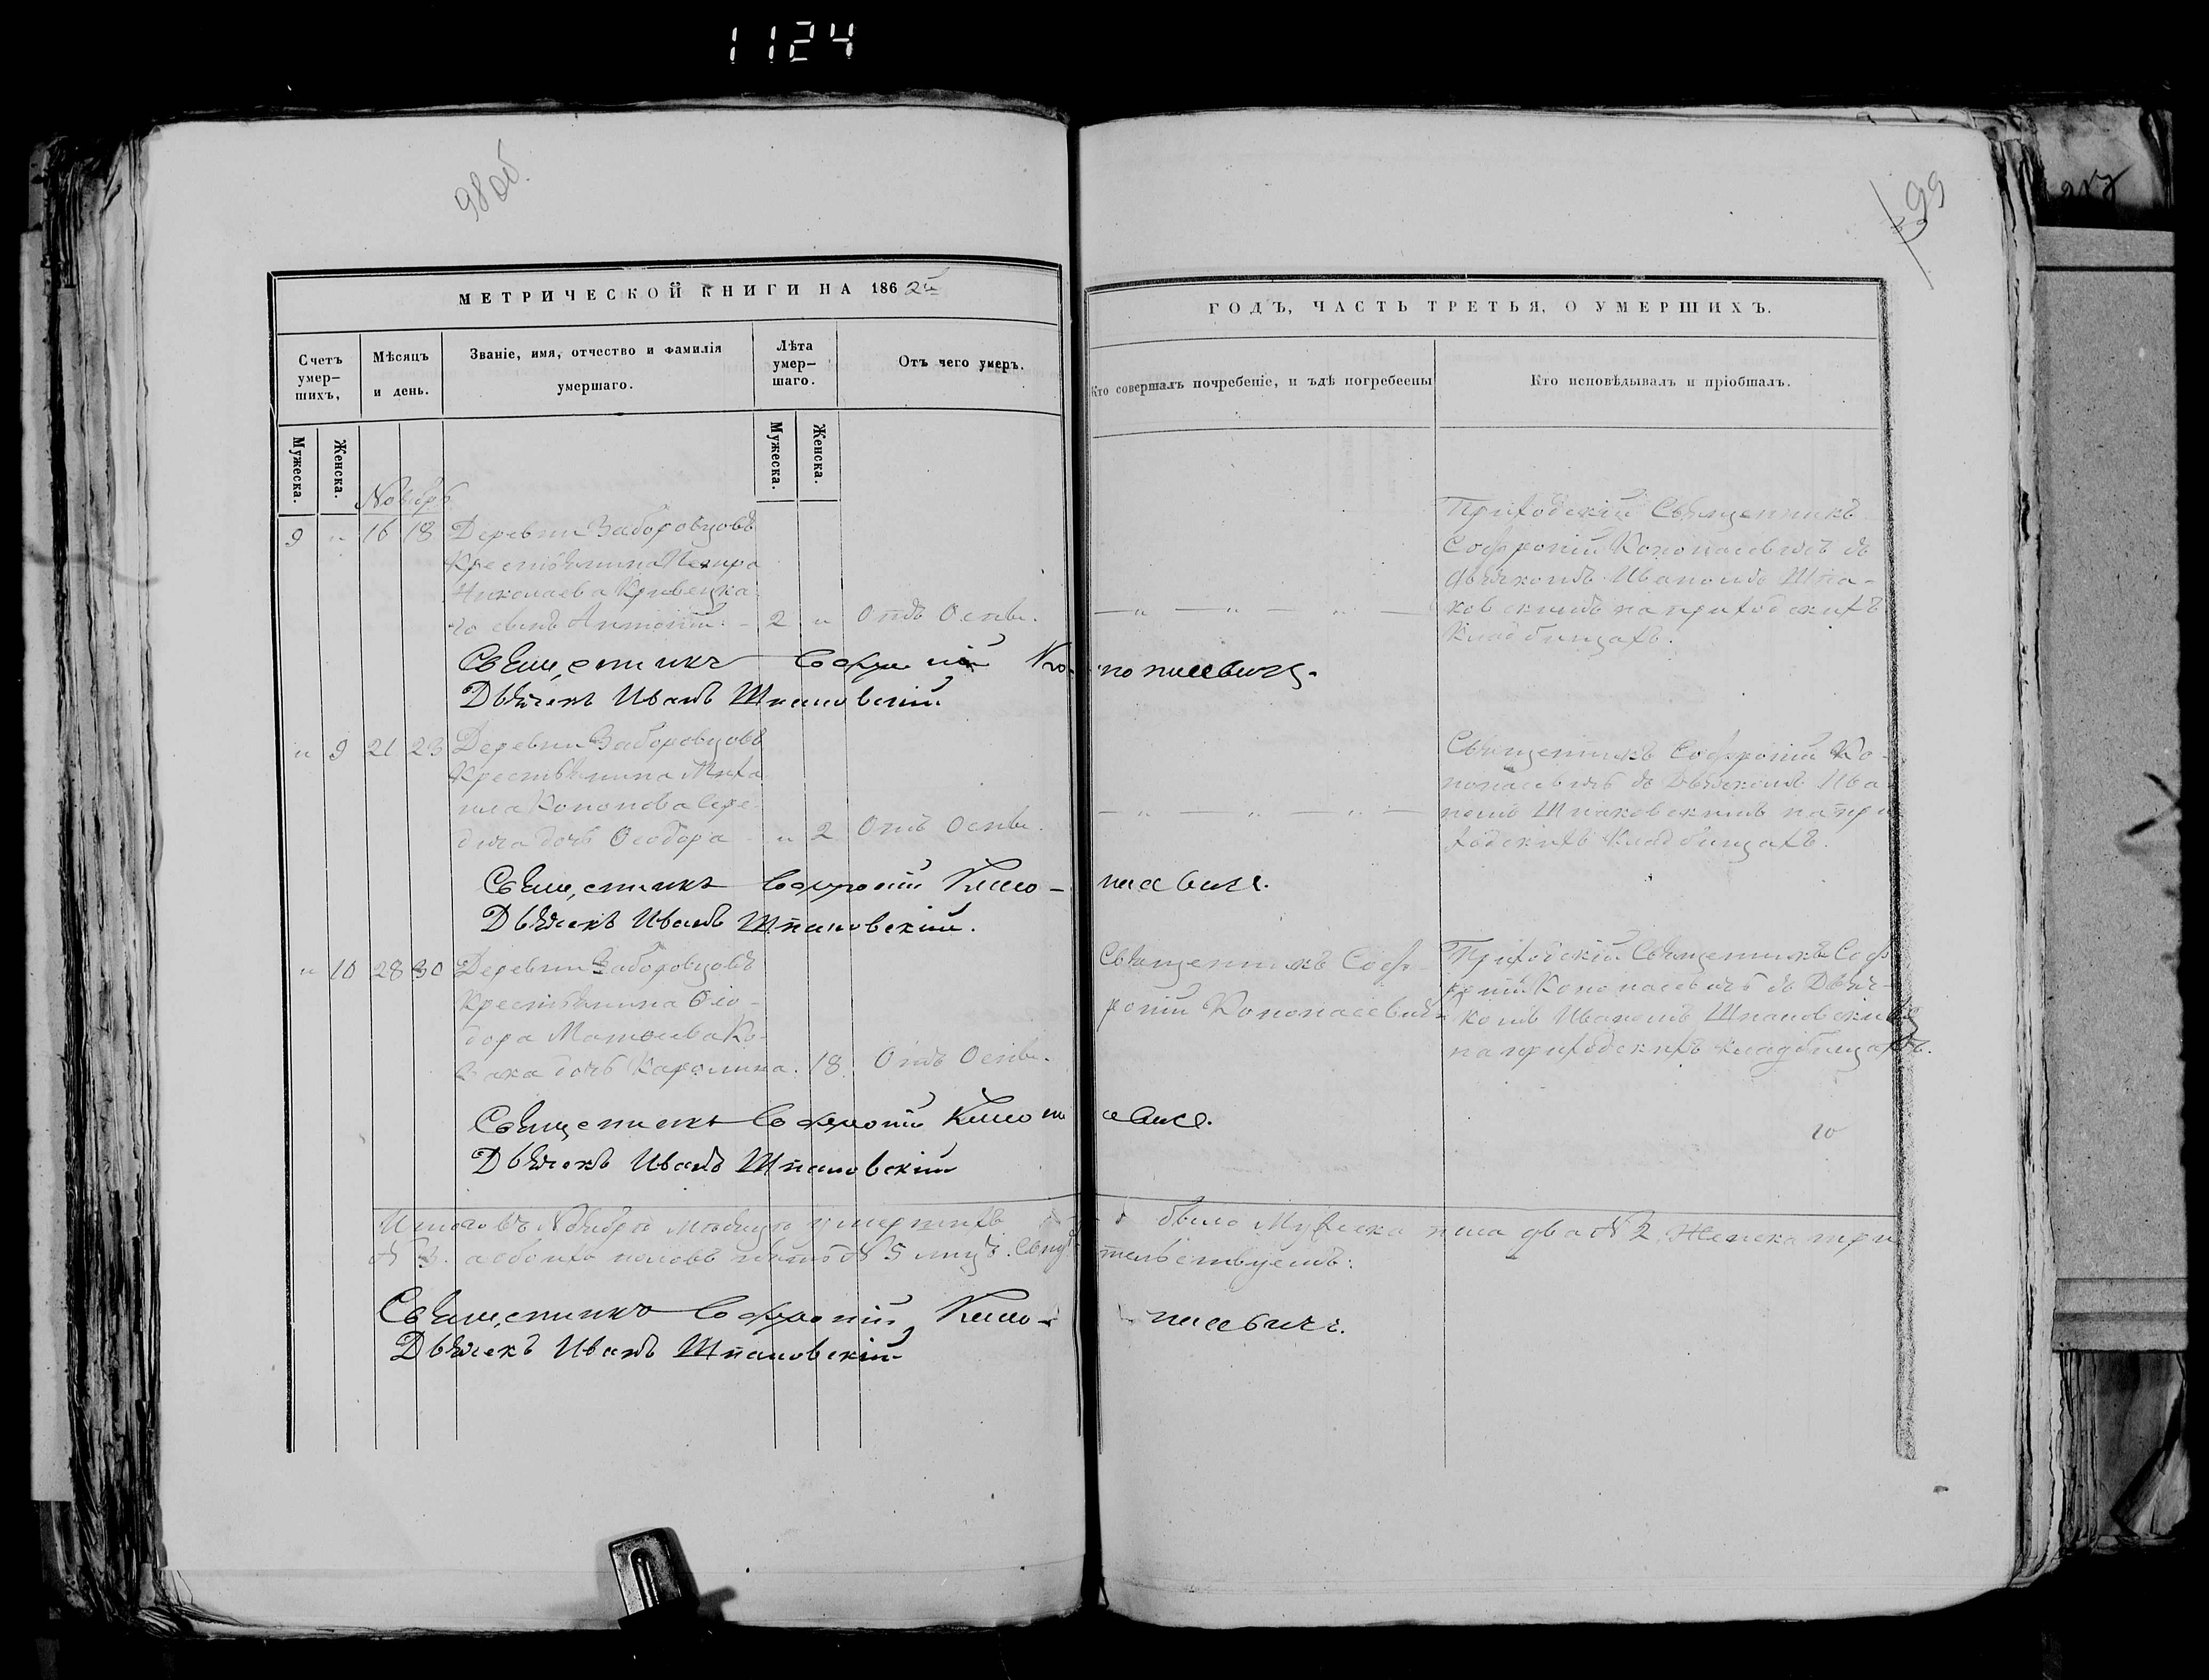 1124
98 об.
99
МЕТРИЧЕСКОЙ КНИГИ НА 1862й
ГОДЪ, ЧАСТЬ ТРЕТЬЯ, О УМЕРШИХЪ.
Счетъ умер-
шихъ,
Мѣсяцъ
и день.
Званіе, имя, отчество и фамилія
умершаго.
Лѣта
умер-
шаго.
Отъ чего умеръ.
Кто совершалъ почребеніе, и ъдѣ погребеены
Кто исповѣдывалъ и пріобшалъ.
Мужеска.
Женска.
Мужеска.
Женска.
Ноябрь
9 " 16 18 Деревни Заборовцовъ
Крестьянина Петра
Николаева Кривецка-
го сынъ Антоній. - 2 " Отъ Оспы.
Приходскій Священникъ
Софроній Кононасевичъ съ
Дьячкомъ Иваномъ Шпа-
ковскимъ на приходскихъ
Кладбищахъ.
Священникъ Софроній Ко-нонасевичъ.
Дьячекъ Иванъ Шпаковскій
" 9 21 23 Деревни Заборовцовъ
Крестьянина Миха-
ила Кононова Сере-
дича дочь Феодора - " 2 Отъ Оспы.
Священникъ Софроній Ко-
нонасевичъ съ Дьячкомъ Ива-
номъ Шпаковскимъ на при-
ходскихъ Кладбищахъ.
Священникъ Софроній Коно-насевичъ.
Дьячекъ Иванъ Шпаковскій.
" 10 28 30 Деревни Заборовцовъ
Крестьянина Фео-
дора Матоеева Ко-
зака дочь Каролина. 18 Отъ Оспы.
Священникъ Соф-
роній Кононасевичъ
Приходскій Священникъ Соф-
роній Кононасевичъ съ Дьяч-
комъ Иваномъ Шпаковскимъ
на приходскихъ кладбищахъ.
Священникъ Софроній Кононасевичъ.
Дьячекъ Иванъ Шпаковскій
10
Итого въ Ноябрѣ мѣсяцѣ умершихъ было Мужеска пола два № 2. Женска три
№ 3. а обоихъ половъ пять № 5 лицъ. Свидѣтельствуемъ:
Священникъ Софроній Коно-насевичъ.
Дьячекъ Иванъ Шпаковскій